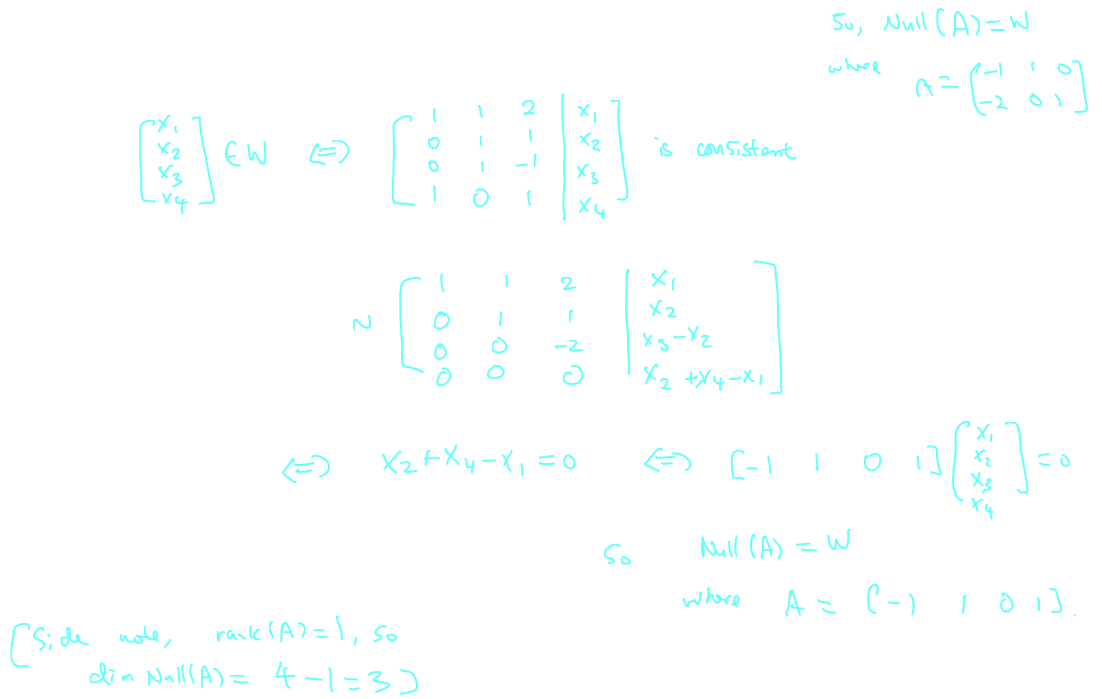 So, Null(A)=W
where A=[-1 1 0
-2 0 1]
[x₁
x₂
x₃
x₄] ∈ W ⇔ [1 1 2 | x₁
0 1 1 | x₂
0 1 -1 | x₃
1 0 1 | x₄] is consistent
~ [1 1 2 | x₁
0 1 1 | x₂
0 0 -2 | x₃-x₂
0 0 0 | x₂+x₄-x₁]
⇔ x₂+x₄-x₁=0 ⇔ [-1 1 0 1][x₁
x₂
x₃
x₄]=0
So Null(A)=W
where A=[-1 1 0 1].
[Side note, rank(A)=1, so
dim Null(A)= 4-1=3]